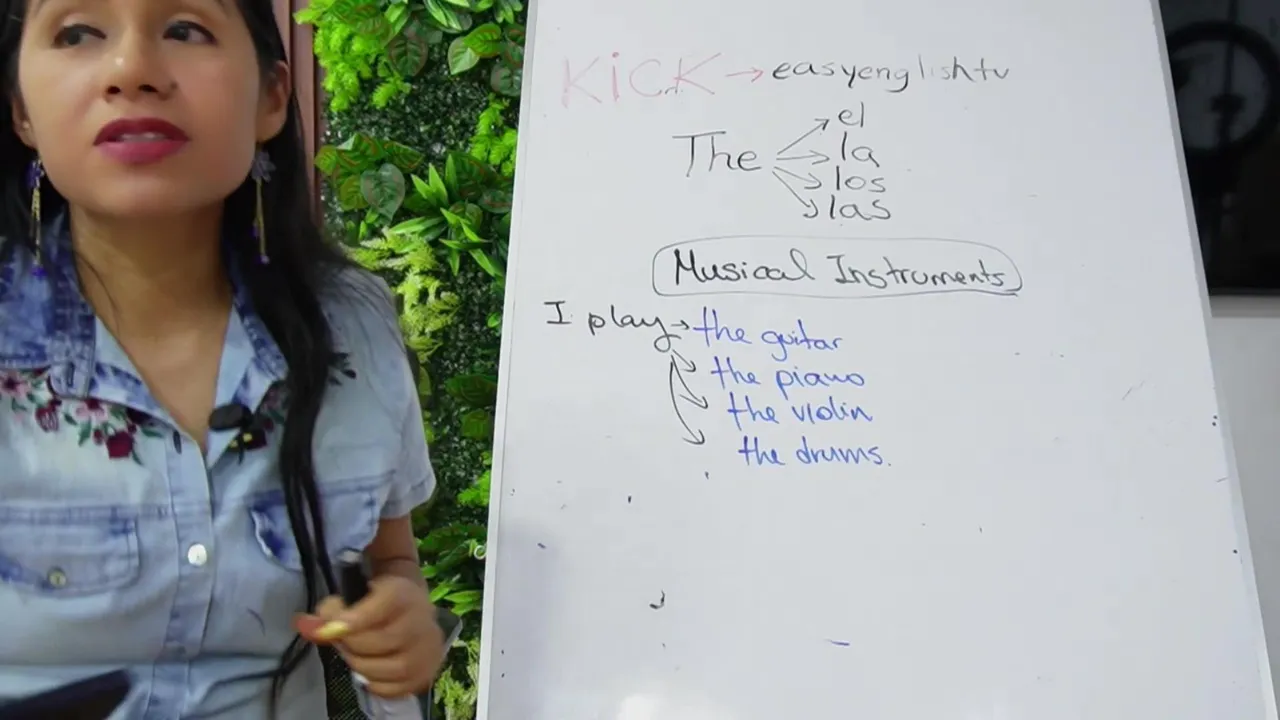 KiCK → easyenglishtv
The → el
→ la
→ los
→ las
Musical Instruments
I play → the guitar
the piano
the violin
the drums.